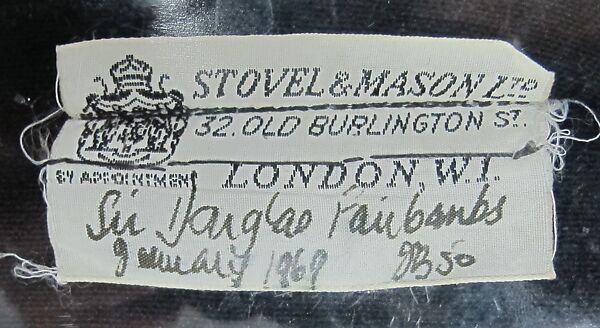 STOVEL & MASON LTD
32. OLD BURLINGTON ST.
BY APPOINTMENT LONDON, W.I.
Sir Douglas Fairbanks
January 1969 JB50